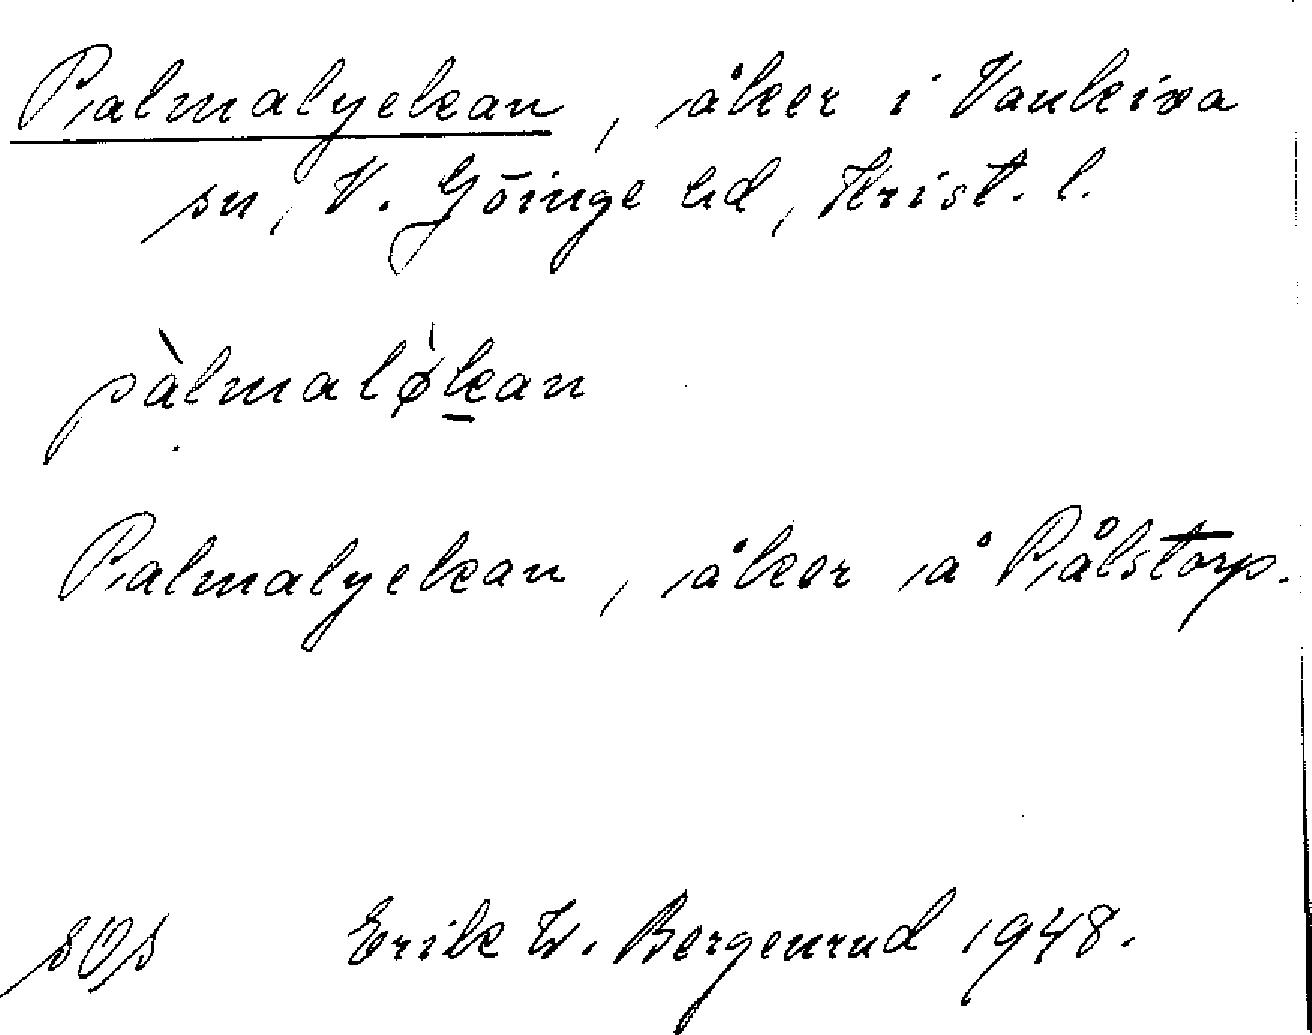 Palmalyckan, åker i Vankiva
sn, V. Göinge hd, Krist. l.
pàlmaløkan
Palmalyckan, åker å Pålstorp.
Erik W. Bergenrud 1948.